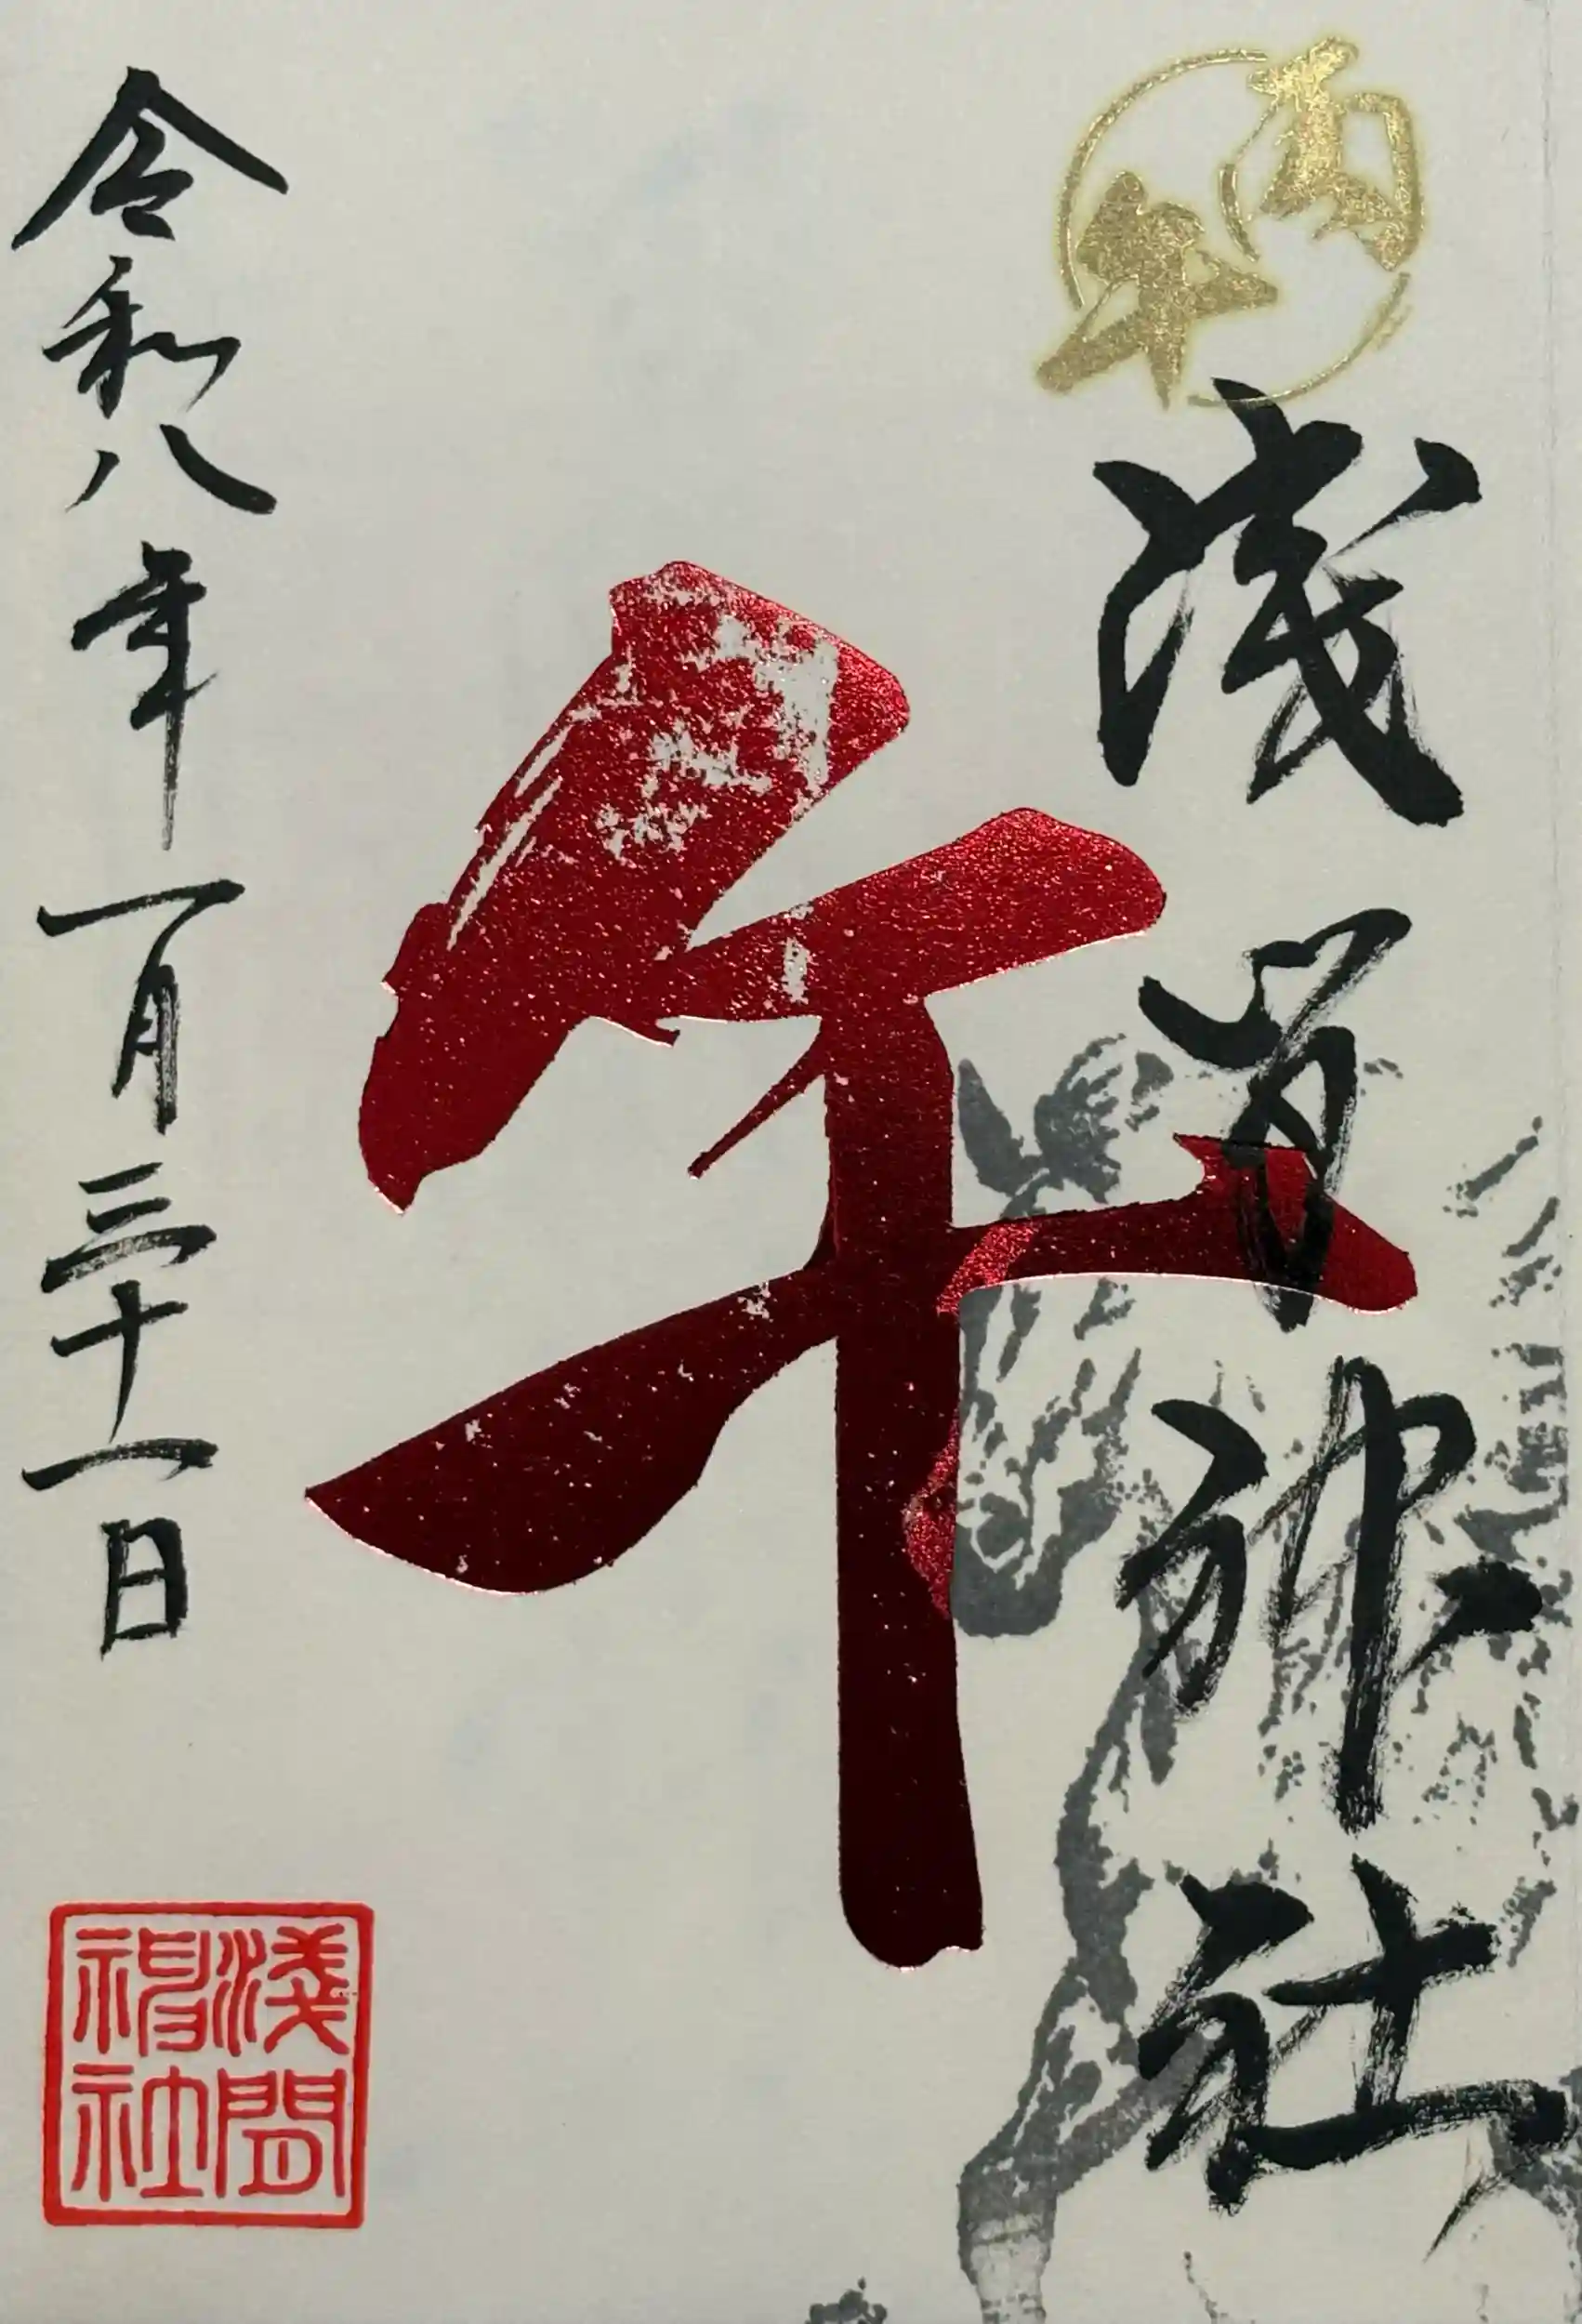 丙午
浅間神社
午
令和八年一月三十一日
浅間
神社